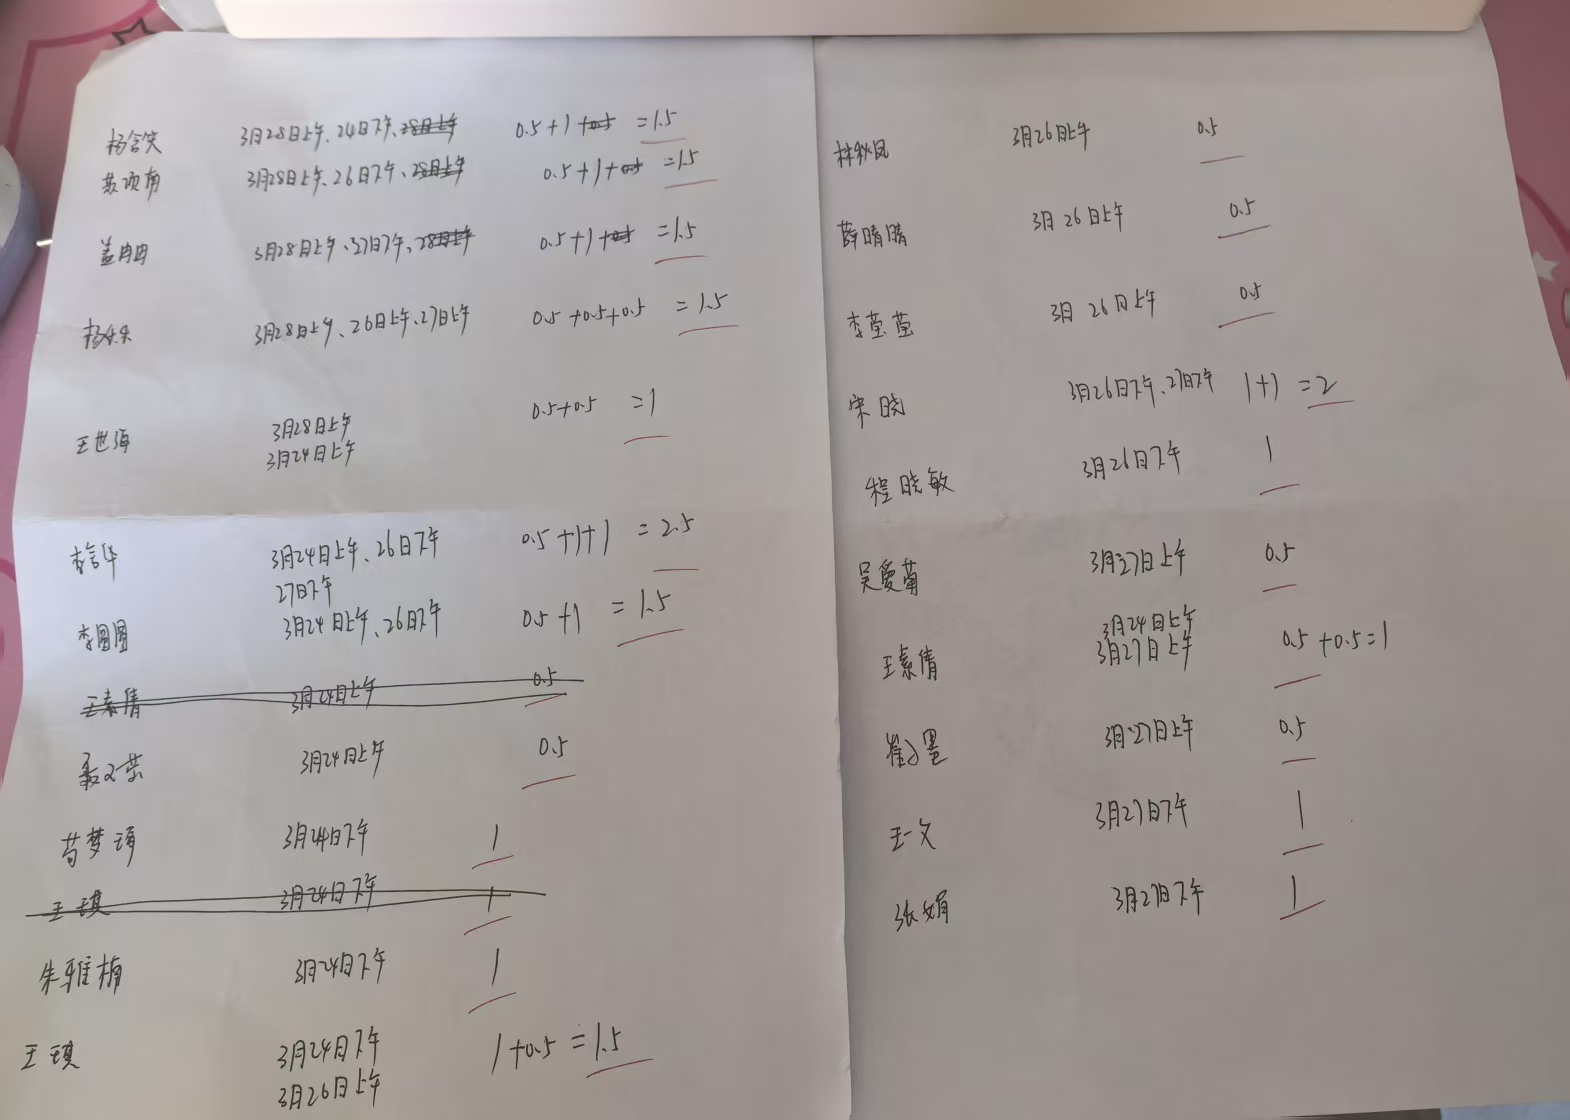 杨含笑 3月28日上午、24日下午、28日上午 0.5+1+0.5 =1.5
3月28日上午、26日下午、28日上午 0.5+1+0.5 =1.5
盖冉冉 3月28日上午、27日下午、28日上午 0.5+1+0.5 =1.5
杨乐乐 3月28日上午、26日上午、27日上午 0.5+0.5+0.5 =1.5
王世海 3月28日上午 0.5+0.5 =1
3月24日上午
李言华 3月24日上午、26日下午 0.5+1+1 =2.5
27日下午
李圆圆 3月24日上午、26日下午 0.5+1 =1.5
王素倩 3月24日上午 0.5
3月24日上午 0.5
苟梦 3月24日下午 1
王琪 3月24日下午 1
朱雅楠 3月24日下午 1
王琪 3月24日下午 1+0.5 =1.5
3月26日上午
林秋凤 3月26日上午 0.5
薛晴晴 3月26日上午 0.5
李莹莹 3月26日上午 0.5
宋晓 3月26日下午、27日下午 1+1 =2
程晓敏 3月26日下午 1
吴爱菊 3月27日上午 0.5
3月24日上午
王素倩 3月27日上午 0.5+0.5=1
3月27日上午 0.5
王一文 3月27日下午 1
张娟 3月27日下午 1